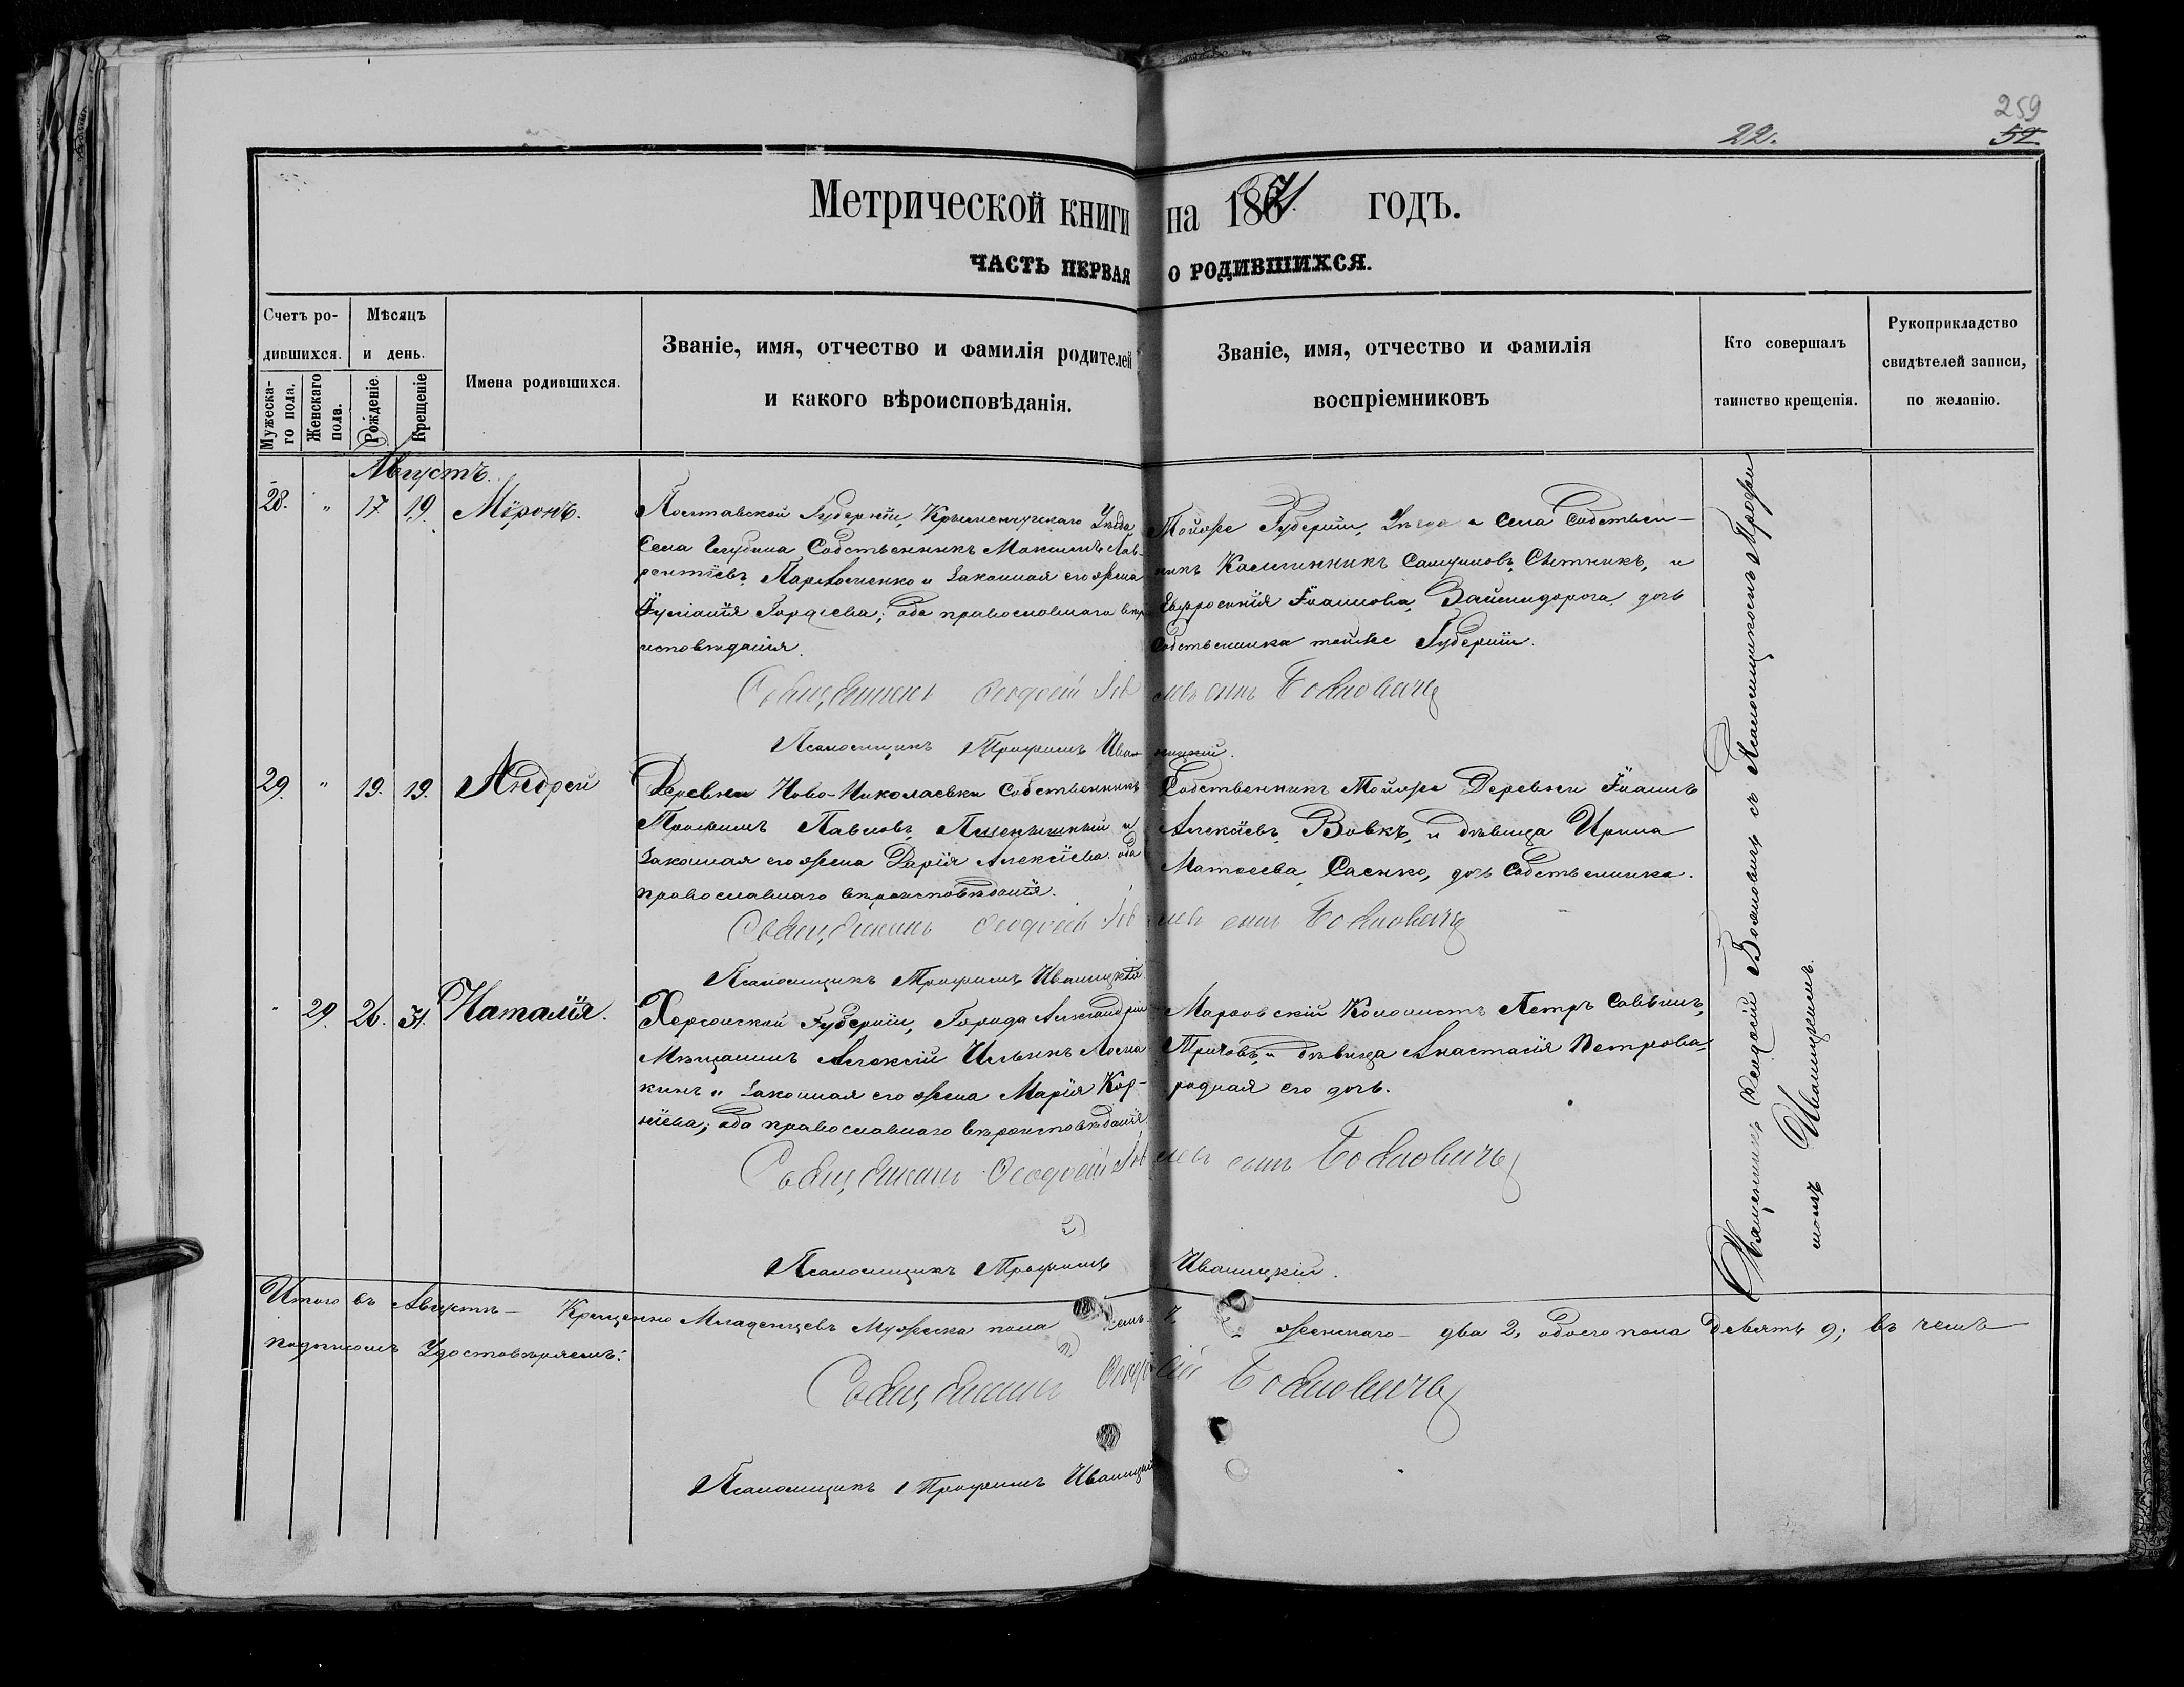 259
22.
52
Метрической книги на 1871 годъ.
ЧАСТЬ ПЕРВАЯ О РОДИВШИХСЯ.
Счетъ ро-
дившихся.
Мужеска-
го пола.
Женскаго
пола.
Мѣсяцъ
и день.
Рожденіе.
Крещеніе
Имена родившихся.
Званіе, имя, отчество и фамилія родителей
и какого вѣроисповѣданія.
Званіе, имя, отчество и фамилія
воспріемниковъ
Кто совершалъ
таинство крещенія.
Рукоприкладство
свидѣтелей записи,
по желанію.
Августъ.
28. " 17. 19. Мѵронъ.
Полтавской Губерніи, Кременчугскаго Уѣзда
Села Собственникъ Максимъ Лав-
рентіевъ Пархоменко и законная его жена
Іуліанія Гордѣева; оба православнаго вѣро
исповѣданія.
Тойже Губерніи, Уѣзда и Села Собствен-
никъ Сытникъ, и
Евфросинія Іоаннова, дочь
Собственника тойже Губерніи.
Священникъ Ѳеодосій Бояновичъ
Псаломщикъ Трофимъ Иваницкій.
29. " 19. 19. Андрей
Деревни Ново-Николаевки Собственникъ
Трофимъ Павловъ, Пшеничный и
законная его жена Дарія Алексіева оба
православнаго вѣроисповѣданія.
Собственникъ Тойже Деревни Іоаннъ
Алексіевъ, Вовкъ, и дѣвица Ирина
Матѳеева, Саенко, дочь Собственника.
Священникъ Ѳеодосій Бояновичъ
Псаломщикъ Трофимъ Иваницкій
" 29. 26. 31. Наталія.
Херсонской Губерніи, Города Александріи
Мѣщанинъ Алексій Ильинъ Лома
кинъ и законная его жена Марія Кор-
нѣева; оба православнаго вѣроисповѣданія
Колонистъ Петръ Саввинъ,
и дѣвица Анастасія Петрова,
родная его дочь.
Священникъ Ѳеодосій Бояновичъ
Псаломщикъ Трофимъ Иваницкій.
Священникъ Ѳеодосій Бояновичъ съ Псаломщикомъ Трофи
момъ Иваницкимъ.
Итого въ Августѣ – Крещенно Младенцевъ Мужеска пола семь 7, женскаго – два 2, обоего пола девять 9; въ чемъ
подписомъ Удостовѣряемъ:
Священникъ Ѳеодосій Бояновичъ
Псаломщикъ Трофимъ Иваницкій